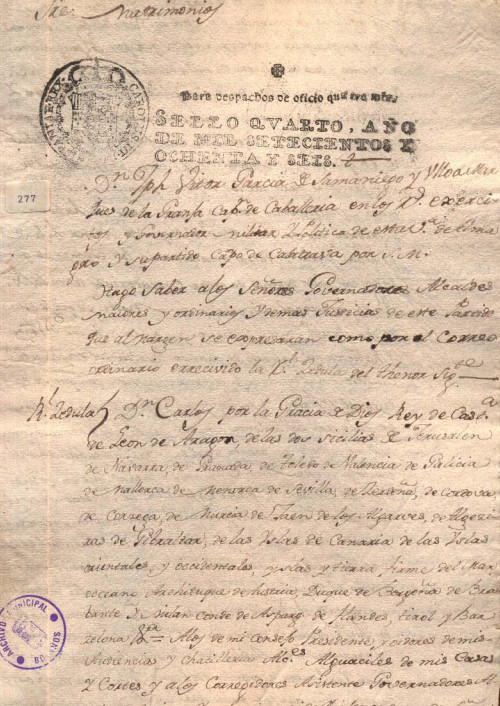 Sre. Matrimonios
CAROLUS III D G HISPANIAR REX
Para despachos de oficio quatro mrs.
SELLO QVARTO, AÑO
DE MIL SETECIENTOS Y
OCHENTA Y SEIS.
277
Dn. Jph Victor Garcia de Samaniego y Ulloa Mar
ques de la Granja Capn. de Caballeria en los Rs. exerci
tos y Governador militar y Politico de esta de Alma
gro y su partido Campo de Calatrava por S.M.
Hago Saber a los Señores Governadores Alcaldes
maiores y ordinarios y demas Justicias de este Partido
que al margen se expresaran como por el Correo
ordinario he recivido la Rl. Zedula del thenor Sigte.
Rl. Zedula Dn. Carlos por la Gracia de Dios Rey de Casta.
de Leon de Aragon, de las dos Sicilias de Jerusalen
de Navarra de Granada, de Toledo de Valencia de Galicia
de Mallorca de Menorca de Sevilla, de Cerdeña, de Cordova,
de Corcega, de Murcia de Jaen de los Algarves, de Algezi
ras de Gibraltar, de las Yslas de Canaria de las Yndias
orientales, y occidentales, yslas y tierra firme del Mar
occeano Archiduque de Austria, Duque de Borgoña de Bra
bante y de Milan Conde de Aspurg de Flandes, tirol y Bar
zelona &a. A los de mi Consejo Presidente, y oidores de mis
Audiencias y Chancillerias Alcs. Alguaciles de mi Casa
y Corte y a los Corregidores Asistente Governadores
ARCHIVO MUNICIPAL
BOLAÑOS